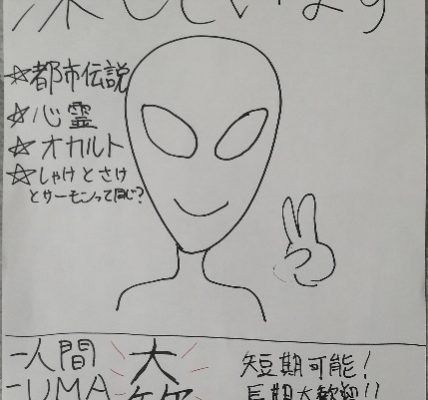 しています
☆都市伝説
☆心霊
☆オカルト
☆しゃけとさけ
とサーモンって同じ?
-人間
-UMA
大
短期可能!
長期大歓迎!!